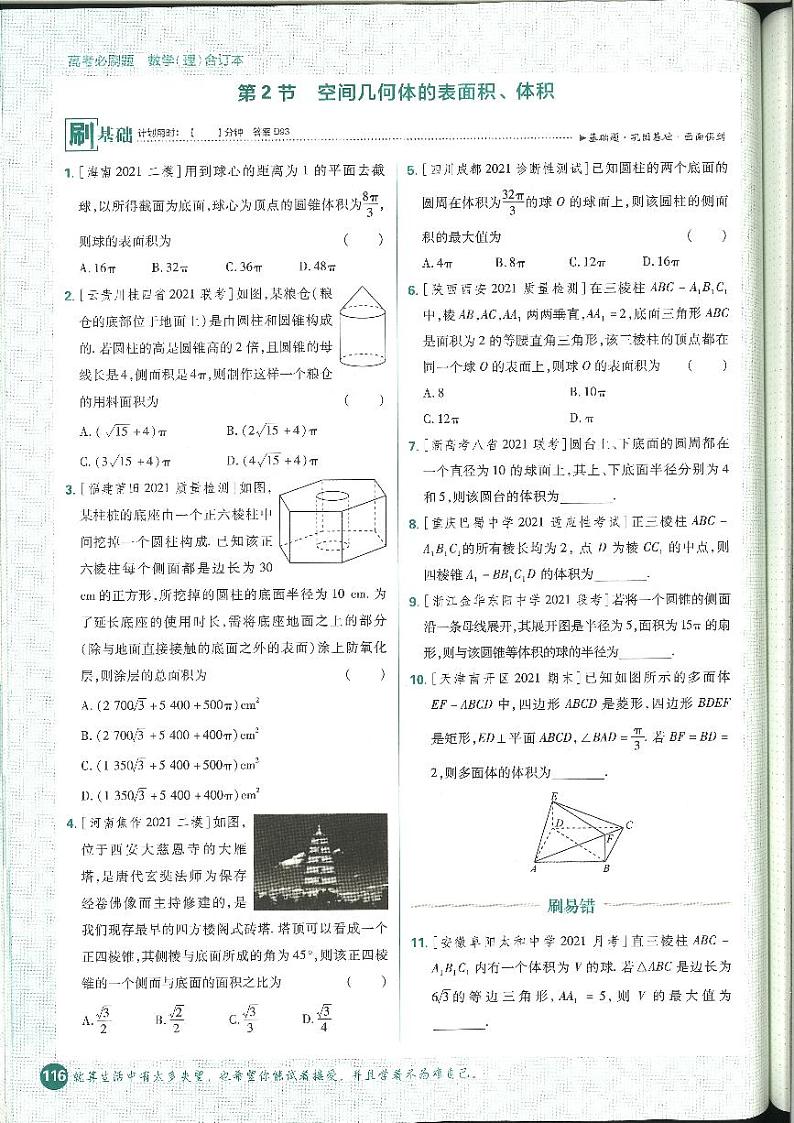 高考必刷题 数学(理)合订本
第2节 空间几何体的表面积、体积
刷基础 计划用时:( )分钟 答案D93 ▶基础题·巩固基础·全面保剑
1.[海南2021二模]用到球心的距离为1的平面去截
球,以所得截面为底面,球心为顶点的圆锥体积为8π/3,
则球的表面积为 ( )
A.16π B.32π C.36π D.48π
2.[云贵川桂四省2021联考]如图,某粮仓(粮
仓的底部位于地面上)是由圆柱和圆锥构成
的.若圆柱的高是圆锥高的2倍,且圆锥的母
线长是4,侧面积是4π,则制作这样一个粮仓
的用料面积为 ( )
A.(√15+4)π B.(2√15+4)π
C.(3√15+4)π D.(4√15+4)π
3.[福建莆田2021质量检测]如图,
某柱桩的底座由一个正六棱柱中
间挖掉一个圆柱构成.已知该正
六棱柱每个侧面都是边长为30
cm的正方形,所挖掉的圆柱的底面半径为10 cm.为
了延长底座的使用时长,需将底座地面之上的部分
(除与地面直接接触的底面之外的表面)涂上防氧化
层,则涂层的总面积为 ( )
A.(2 700√3+5 400+500π)cm²
B.(2 700√3+5 400+400π)cm²
C.(1 350√3+5 400+500π)cm²
D.(1 350√3+5 400+400π)cm²
4.[河南焦作2021二模]如图,
位于西安大慈恩寺的大雁
塔,是唐代玄奘法师为保存
经卷佛像而主持修建的,是
我们现存最早的四方楼阁式砖塔.塔顶可以看成一个
正四棱锥,其侧棱与底面所成的角为45°,则该正四棱
锥的一个侧面与底面的面积之比为 ( )
A.√3/2 B.√2/2 C.√3/3 D.√3/4
5.[四川成都2021诊断性测试]已知圆柱的两个底面的
圆周在体积为32π/3的球O的球面上,则该圆柱的侧面
积的最大值为 ( )
A.4π B.8π C.12π D.16π
6.[陕西西安2021质量检测]在三棱柱ABC-A₁B₁C₁
中,棱AB,AC,AA₁两两垂直,AA₁=2,底面三角形ABC
是面积为2的等腰直角三角形,该三棱柱的顶点都在
同一个球O的表面上,则球O的表面积为 ( )
A.8 B.10π
C.12π D.π
7.[新高考八省2021联考]圆台上、下底面的圆周都在
一个直径为10的球面上,其上、下底面半径分别为4
和5,则该圆台的体积为______.
8.[重庆巴蜀中学2021适应性考试]正三棱柱ABC-
A₁B₁C₁的所有棱长均为2,点D为棱CC₁的中点,则
四棱锥A₁-BB₁C₁D的体积为______.
9.[浙江金华东阳中学2021段考]若将一个圆锥的侧面
沿一条母线展开,其展开图是半径为5,面积为15π的扇
形,则与该圆锥等体积的球的半径为______.
10.[天津南开区2021期末]已知如图所示的多面体
EF-ABCD中,四边形ABCD是菱形,四边形BDEF
是矩形,ED⊥平面ABCD,∠BAD=π/3.若BF=BD=
2,则多面体的体积为______.
E
D C
F
A B
刷易错
11.[安徽阜阳太和中学2021月考]直三棱柱ABC-
A₁B₁C₁内有一个体积为V的球.若△ABC是边长为
6√3的等边三角形,AA₁=5,则V的最大值为
______.
116 就算生活中有太多失望,也希望你能试着接受,并且学着不为难自己。